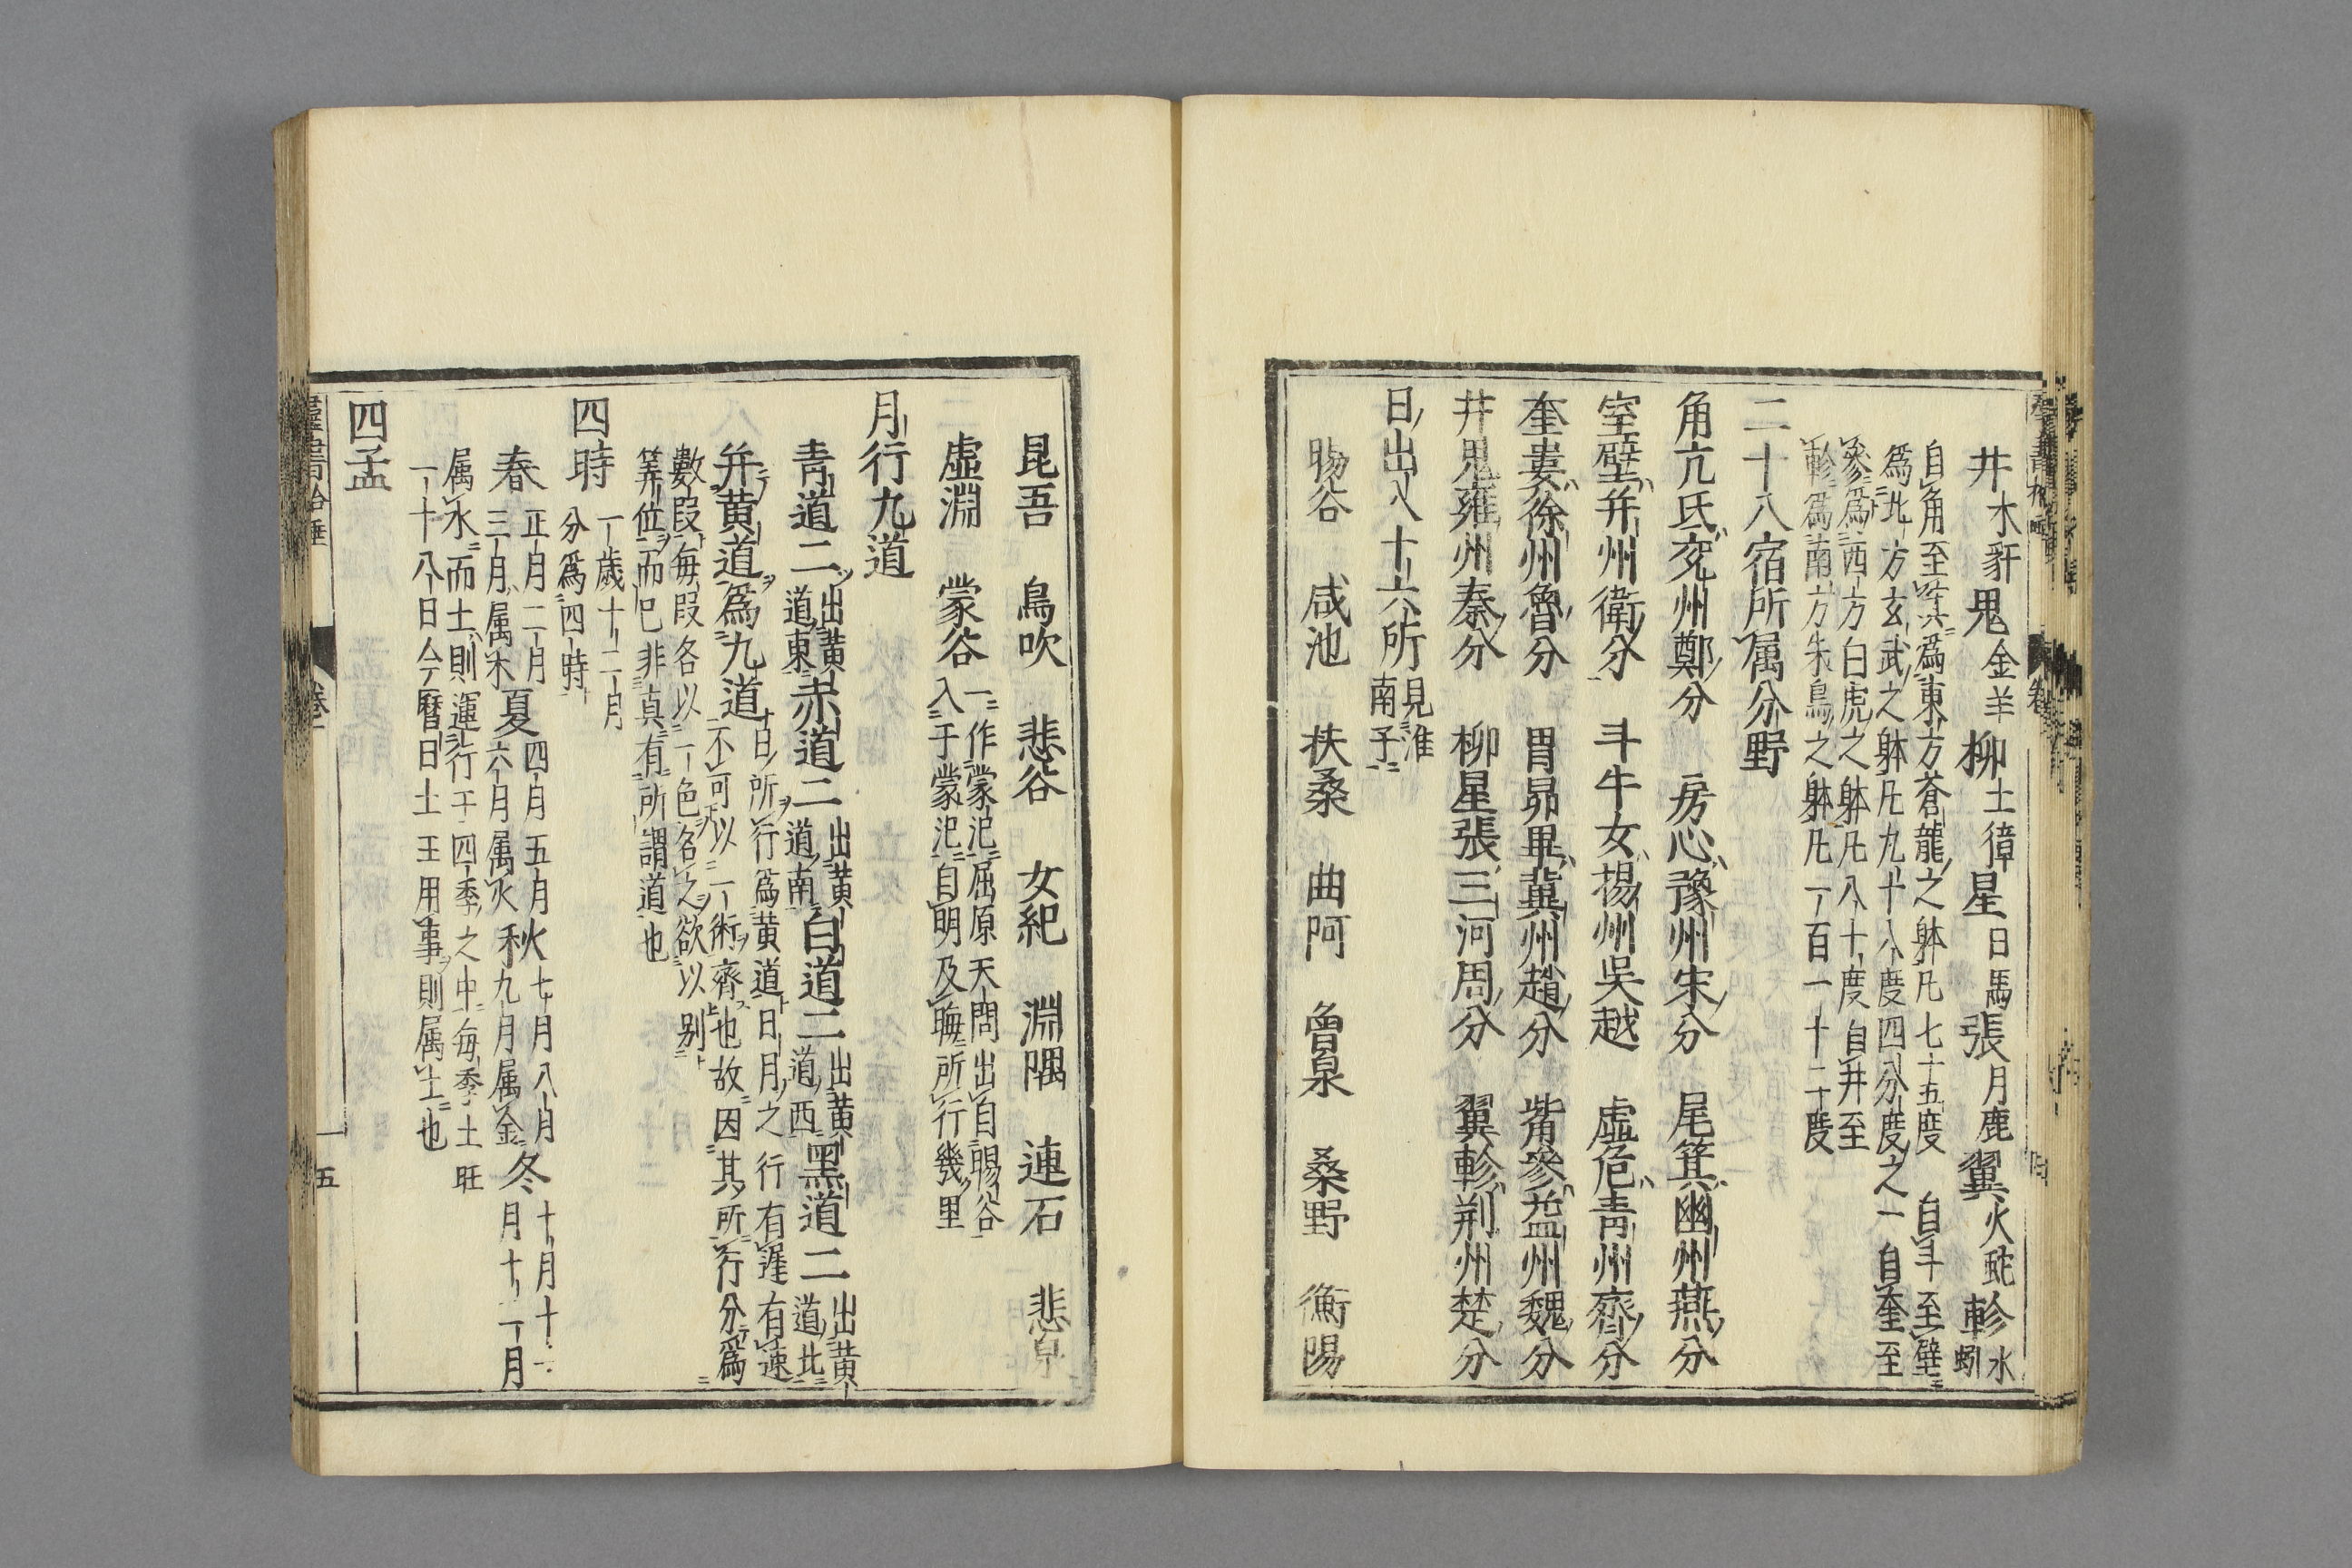 井木豻鬼金羊柳土獐星日馬張月鹿翼火蛇軫水蚓
自角至箕爲東方蒼龍之躰凡七十五度 自斗至壁
爲北方玄武之躰凡九十八度四分度之一 自奎至
參爲西方白虎之躰凡八十度 自井至
軫爲南方朱鳥之躰凡一百一十二度
二十八宿所属分野
角亢氐兖州鄭分 房心豫州宋分 尾箕幽州燕分
室壁并州衛分 斗牛女揚州吳越 虛危青州齊分
奎婁徐州魯分 胃昴畢冀州趙分 觜參益州魏分
井鬼雍州秦分 柳星張三河周分 翼軫荆州楚分
日出入十六所 見淮
南子
暘谷 咸池 扶桑 曲阿 曾泉 桑野 衡陽
昆吾 鳥吹 悲谷 女紀 淵隅 連石 悲泉
虛淵 蒙谷 一作蒙汜屈原天問出自暘谷
入于蒙汜自明及晦所行幾里
月行九道
青道二 出黄道東 赤道二 出黄道南 白道二 出黄道西 黑道二 出黄道北
并黄道爲九道 日所行爲黄道日月之行有遲有速
不可以一術齊也故因其所行分爲
數段每段各以一色名之欲以别
筭位而已非真有所謂道也
四時 一歲十二月
分爲四時
春 正月二月三月属木 夏 四月五月六月属火 秋 七月八月九月属金 冬 十月十一月十二月
属水而土則運行于四季之中每季土旺
一十八日今曆日土王用事則属土也
四孟
羣書拾唾 卷一 五